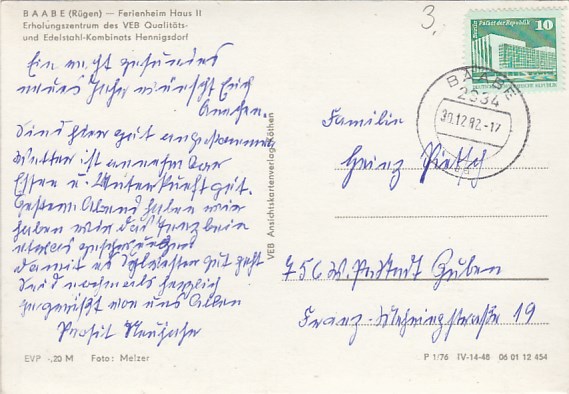 BAABE (Rügen) — Ferienheim Haus II
Erholungszentrum des VEB Qualitäts-
und Edelstahl-Kombinats Hennigsdorf
3,
Palast der Republik
10
DEUTSCHE DEMOKRATISCHE REPUBLIK
BAABE
2334
30.12.82-17
Ein recht gesundes
neues Jahr wünscht Euch
Sind hier gut angekommen
Wetter ist annehmbar
Essen u. Unterkunft gut.
Gestern Abend haben wir
haben wir das Tanzbein
etwas geschwungen
damit es Schlechter gut geht
Seid nochmals herzlich
gegrüßt von uns Allen
Prosit Neujahr
Familie
Heinz
756 W. P. Stadt Guben
Franz-Mehringstraße 19
VEB Ansichtskartenverlag Köthen
EVP -,20 M Foto: Melzer
P 1/76 IV-14-48 06 01 12 454